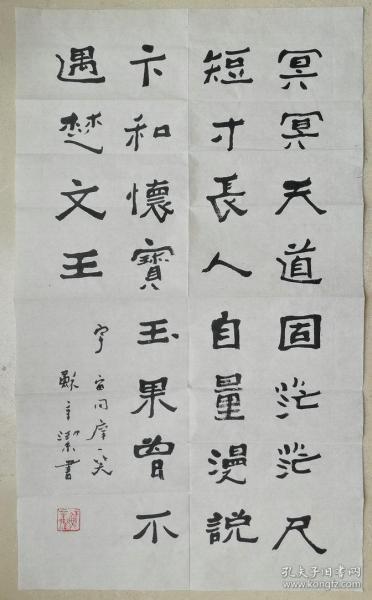 冥冥天道固茫茫尺
短寸長人自量漫説
卞和懷寶玉果曾不
遇楚文王
宇宙同摩一笑
蘇幸潔書
孔夫子旧书网